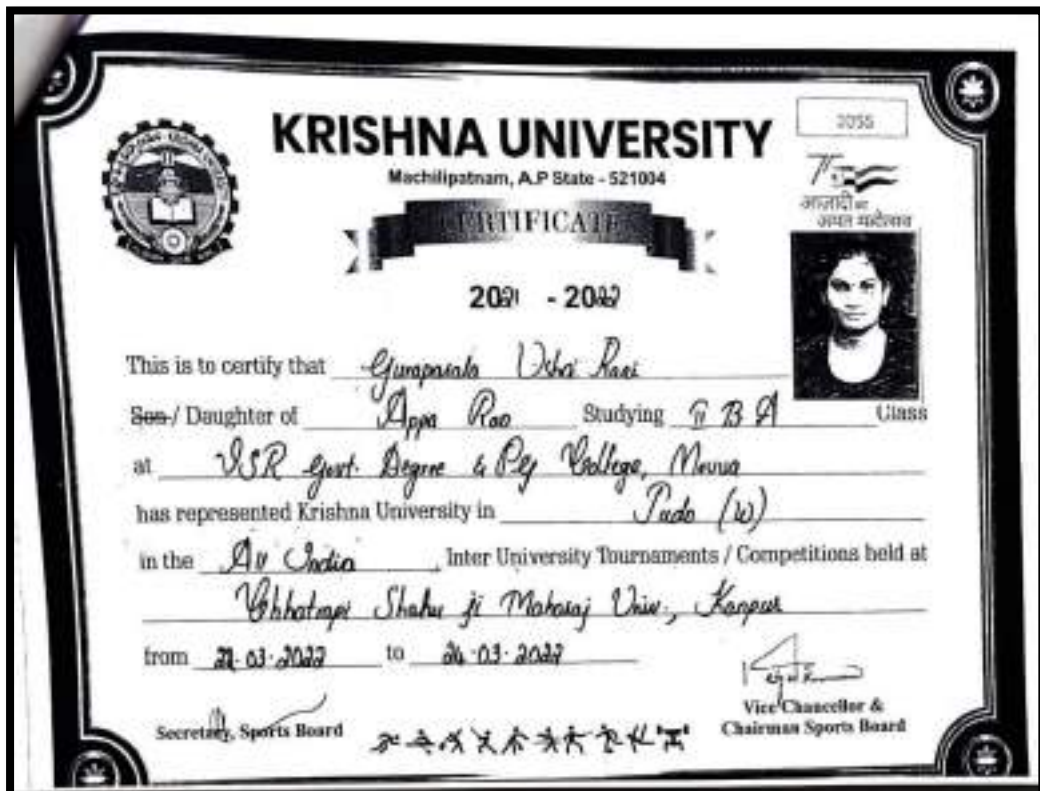 KRISHNA UNIVERSITY
3055
Machilipatnam, A.P State - 521004
CERTIFICATE
आज़ादी का
अमृत महोत्सव
2021 - 2022
This is to certify that Usha Rani
Son / Daughter of Appa Rao Studying II B A Class
at VSR Govt. Degree & PG College, Movva
has represented Krishna University in Judo (W)
in the All India Inter University Tournaments / Competitions held at
Chhatrapi Shahu ji Maharaj Univ., Kanpur
from 21-03-2022 to 24-03-2022
Secretary, Sports Board
Vice Chancellor &
Chairman Sports Board